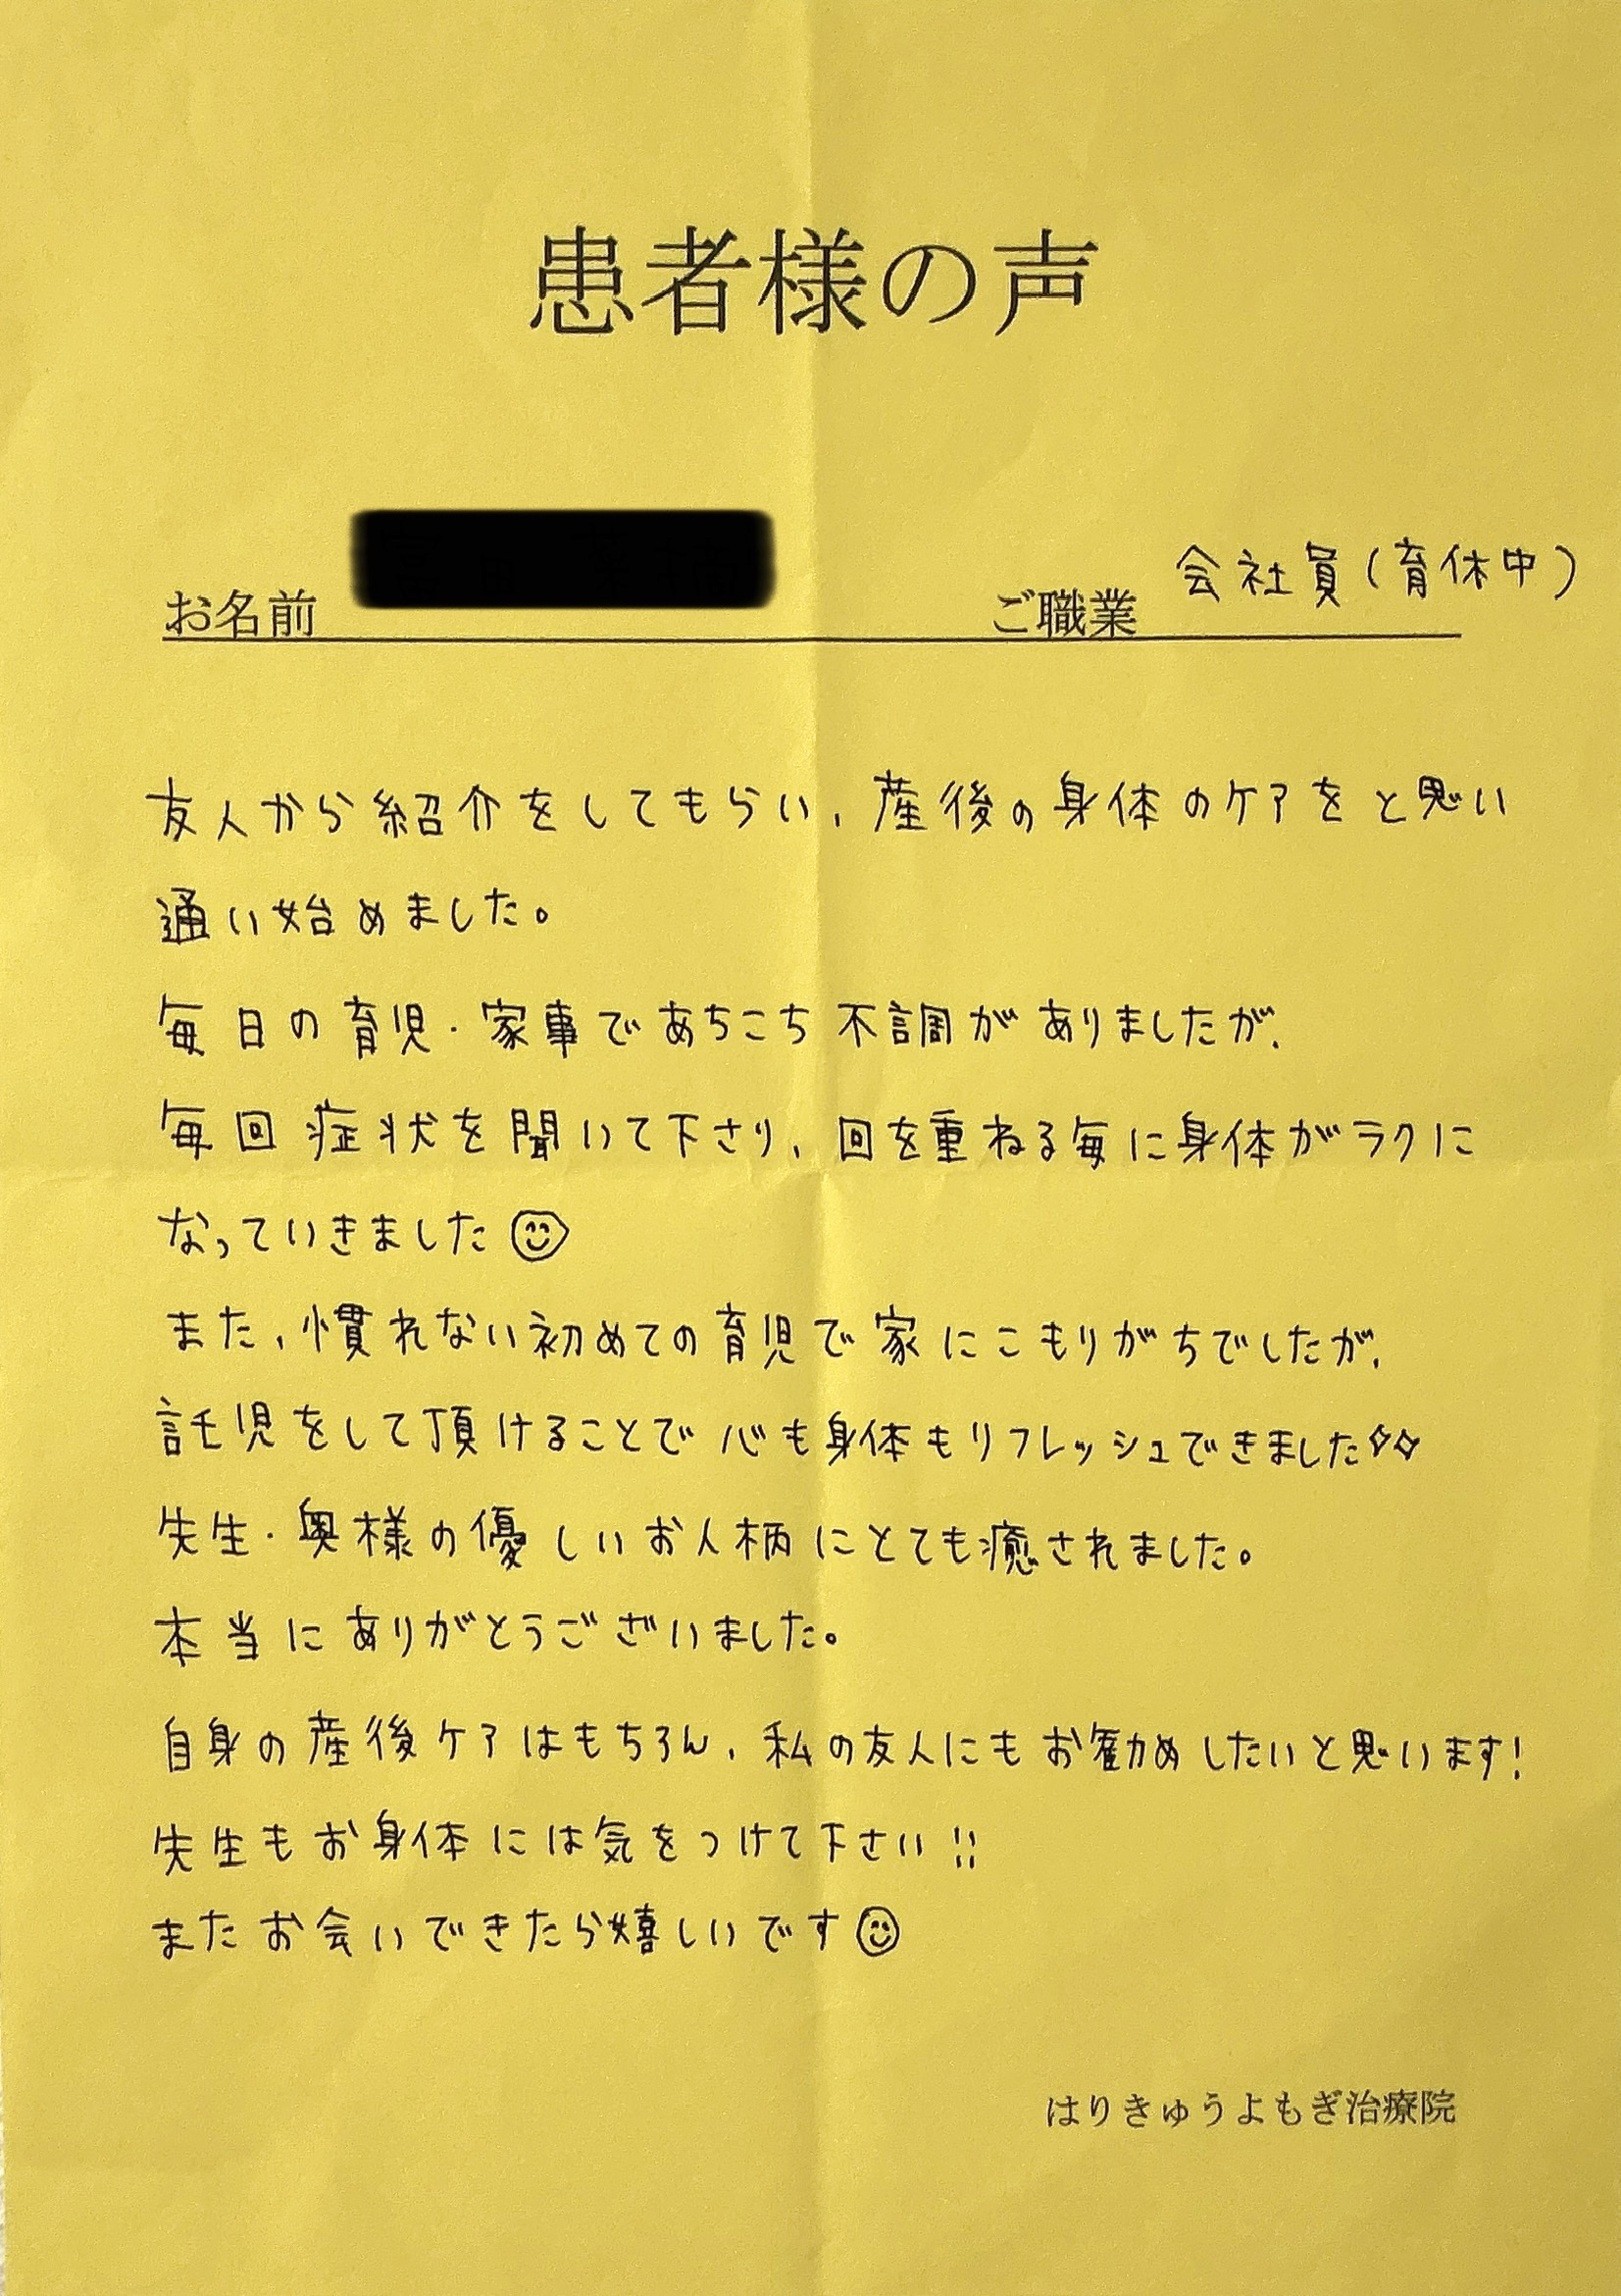 患者様の声
お名前 ご職業 会社員(育休中)
友人から紹介をしてもらい、産後の身体のケアをと思い
通い始めました。
毎日の育児・家事であちこち不調がありましたが、
毎回症状を聞いて下さり、回を重ねる毎に身体がラクに
なっていきました☺
また、慣れない初めての育児で家にこもりがちでしたが、
託児をして頂けることで心も身体もリフレッシュできました✧✧
先生・奥様の優しいお人柄にとても癒されました。
本当にありがとうございました。
自身の産後ケアはもちろん、私の友人にもお勧めしたいと思います!
先生もお身体には気をつけて下さい!!
またお会いできたら嬉しいです☺
はりきゅうよもぎ治療院